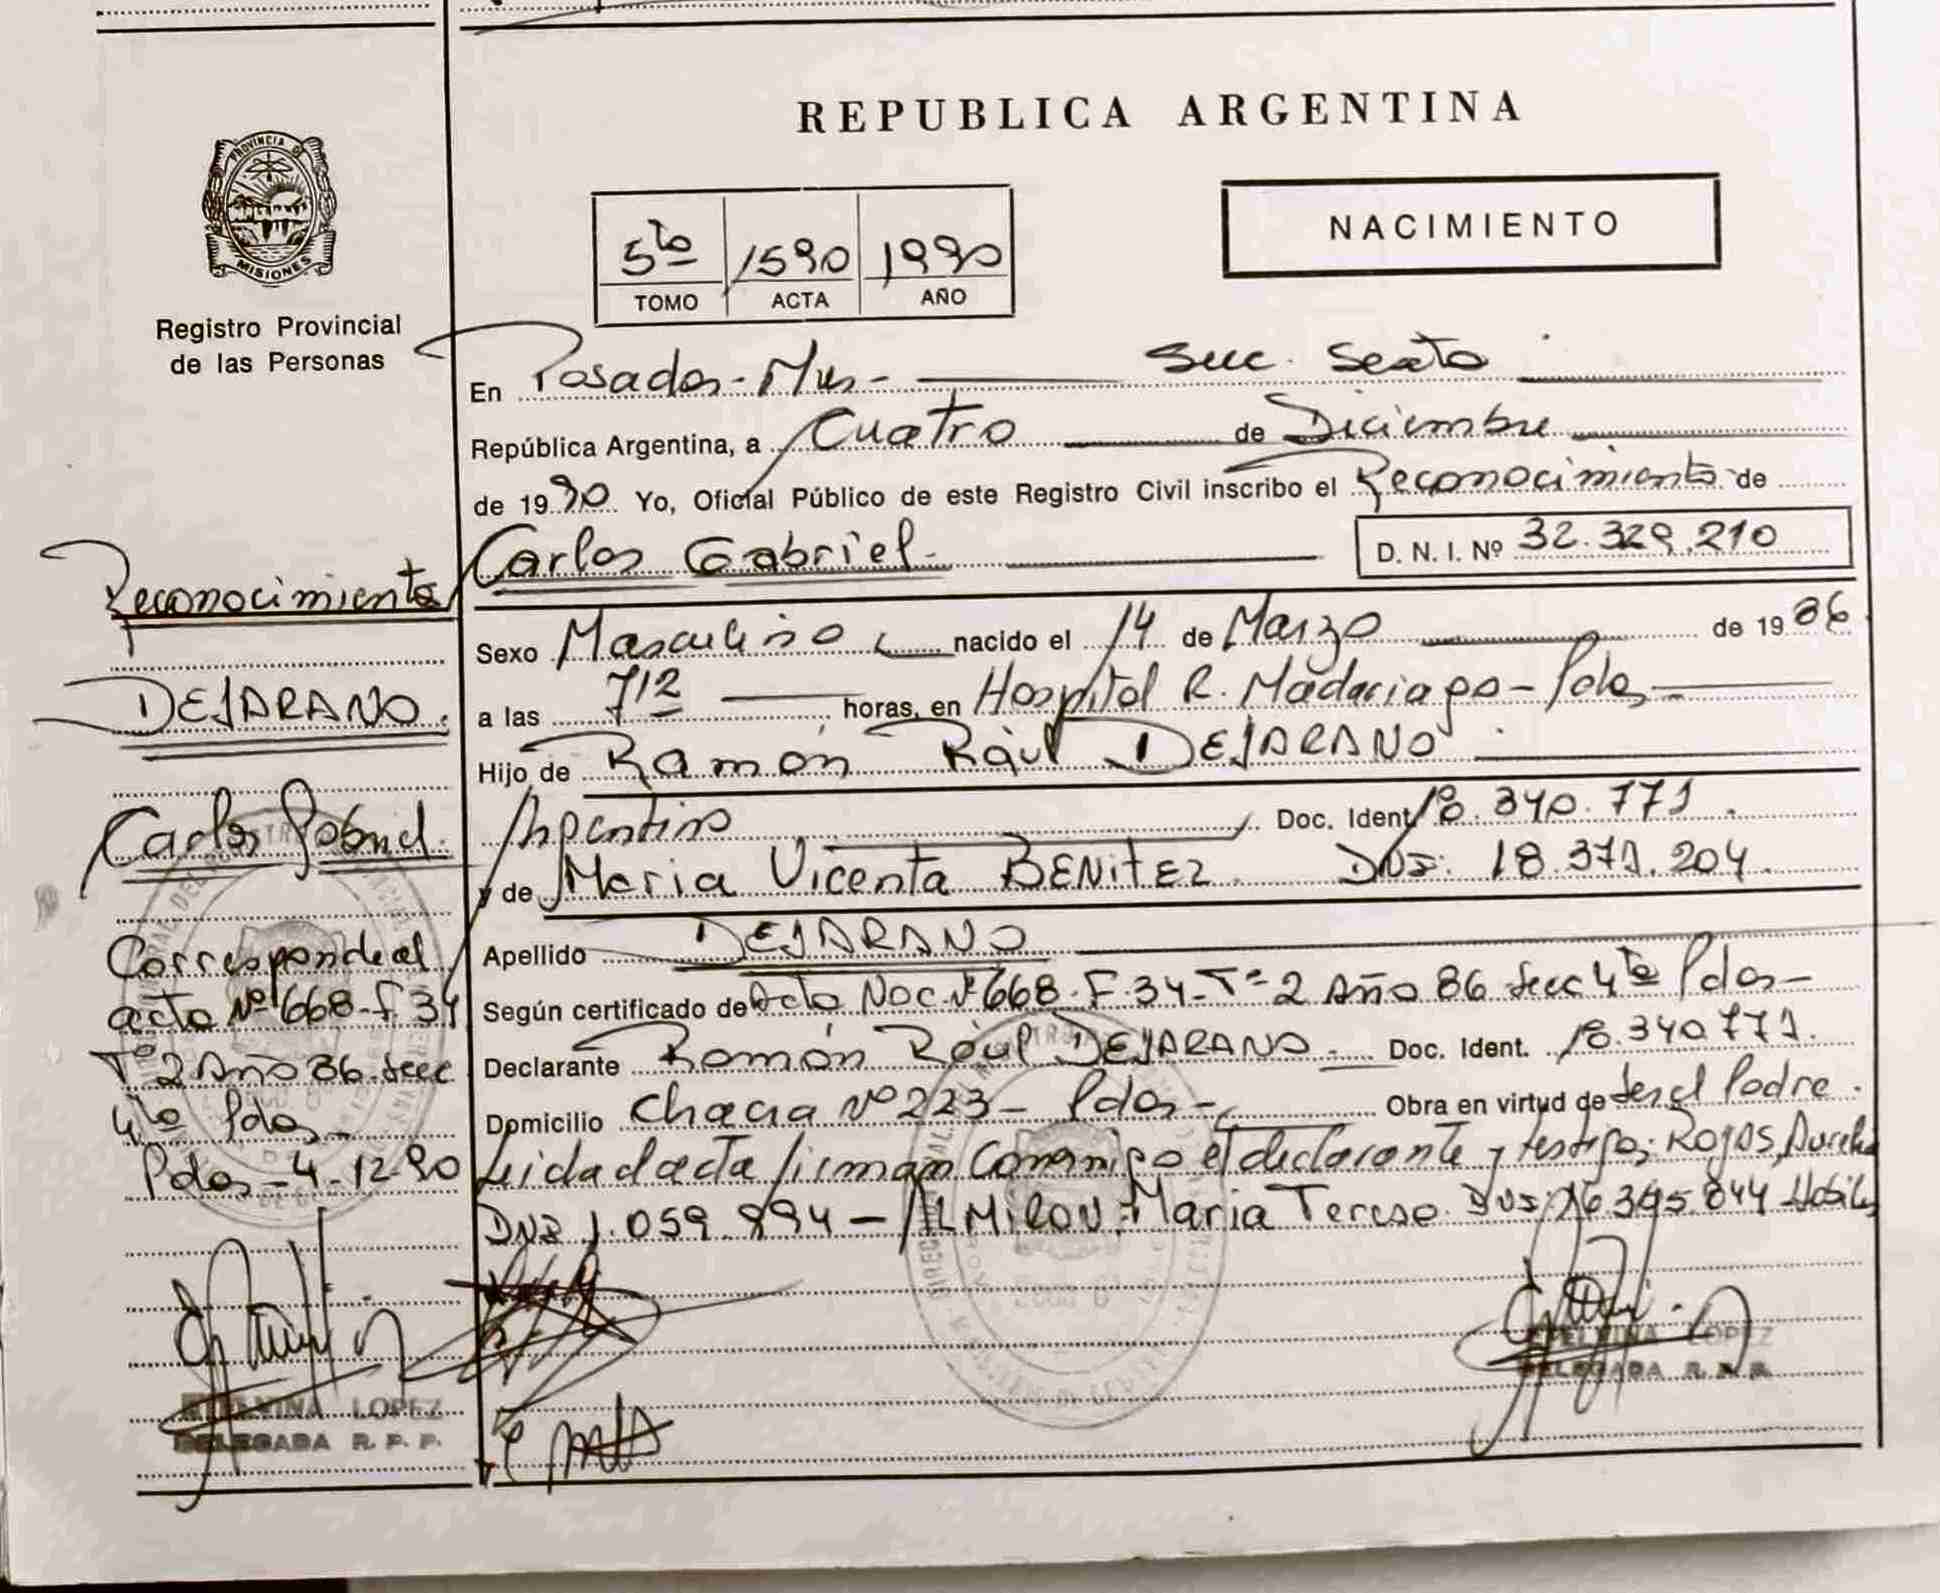 REPUBLICA ARGENTINA
PROVINCIA DE
MISIONES
Registro Provincial
de las Personas
5to 1590 1990
TOMO ACTA AÑO
NACIMIENTO
En Posadas - Mnes - Secc. Sexta
República Argentina, a Cuatro de Diciembre
de 1990 Yo, Oficial Público de este Registro Civil inscribo el Reconocimiento de
Carlos Gabriel D. N. I. Nº 32.329.210
Sexo Masculino nacido el 14 de Marzo de 1986
a las 7 1/2 horas, en Hospital R. Madariaga - Pdas
Hijo de Ramón Raúl DEJARANO
Argentino Doc. Ident. 18.340.771
y de Maria Vicenta BENITEZ DNI: 18.371.204
Apellido DEJARANO
Según certificado de Acta Nac. Nº 668-F.34-Tº 2 Año 86 Secc 4ta Pdas-
Declarante Ramón Raúl DEJARANO Doc. Ident. 18.340.771.
Domicilio Chacra Nº 223 - Pdas - Obra en virtud de ser el Padre.
Leida el acta firman Conmigo el declarante y testigos; Rojas, Aurelia
DNI 1.059.994 - ALMIRON, Maria Teresa DNI: 16.395.844 Habiles
ETELVINA LOPEZ
DELEGADA R. P. P.
Reconocimiento
DEJARANO.
Carlos Gabriel
Corresponde al
acta Nº 668-F 34
Tº 2 Año 86 Secc
4ta Pdas-
Pdas-4-12-90
ETELVINA LOPEZ
DELEGADA R. P. P.